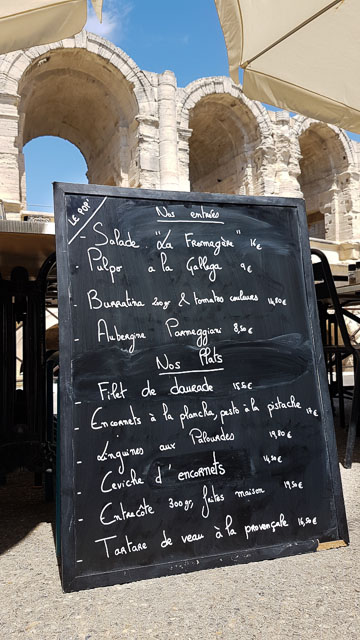 LE POP'
Nos entrées
- Salade "La Fromagère" 16€
- Pulpo a la Gallega 9€
- Burratina 200gr & tomates couleurs 14,80€
- Aubergine Parmeggiani 8,50€
Nos Plats
- Filet de daurade 15,50€
- Encornets à la plancha, pesto à la pistache
- Linguines aux Palourdes 19,80€
- Ceviche d'encornets 14,50€
- Entrecôte 300gr, frites maison 19,50€
- Tartare de veau à la provençale 16,50€